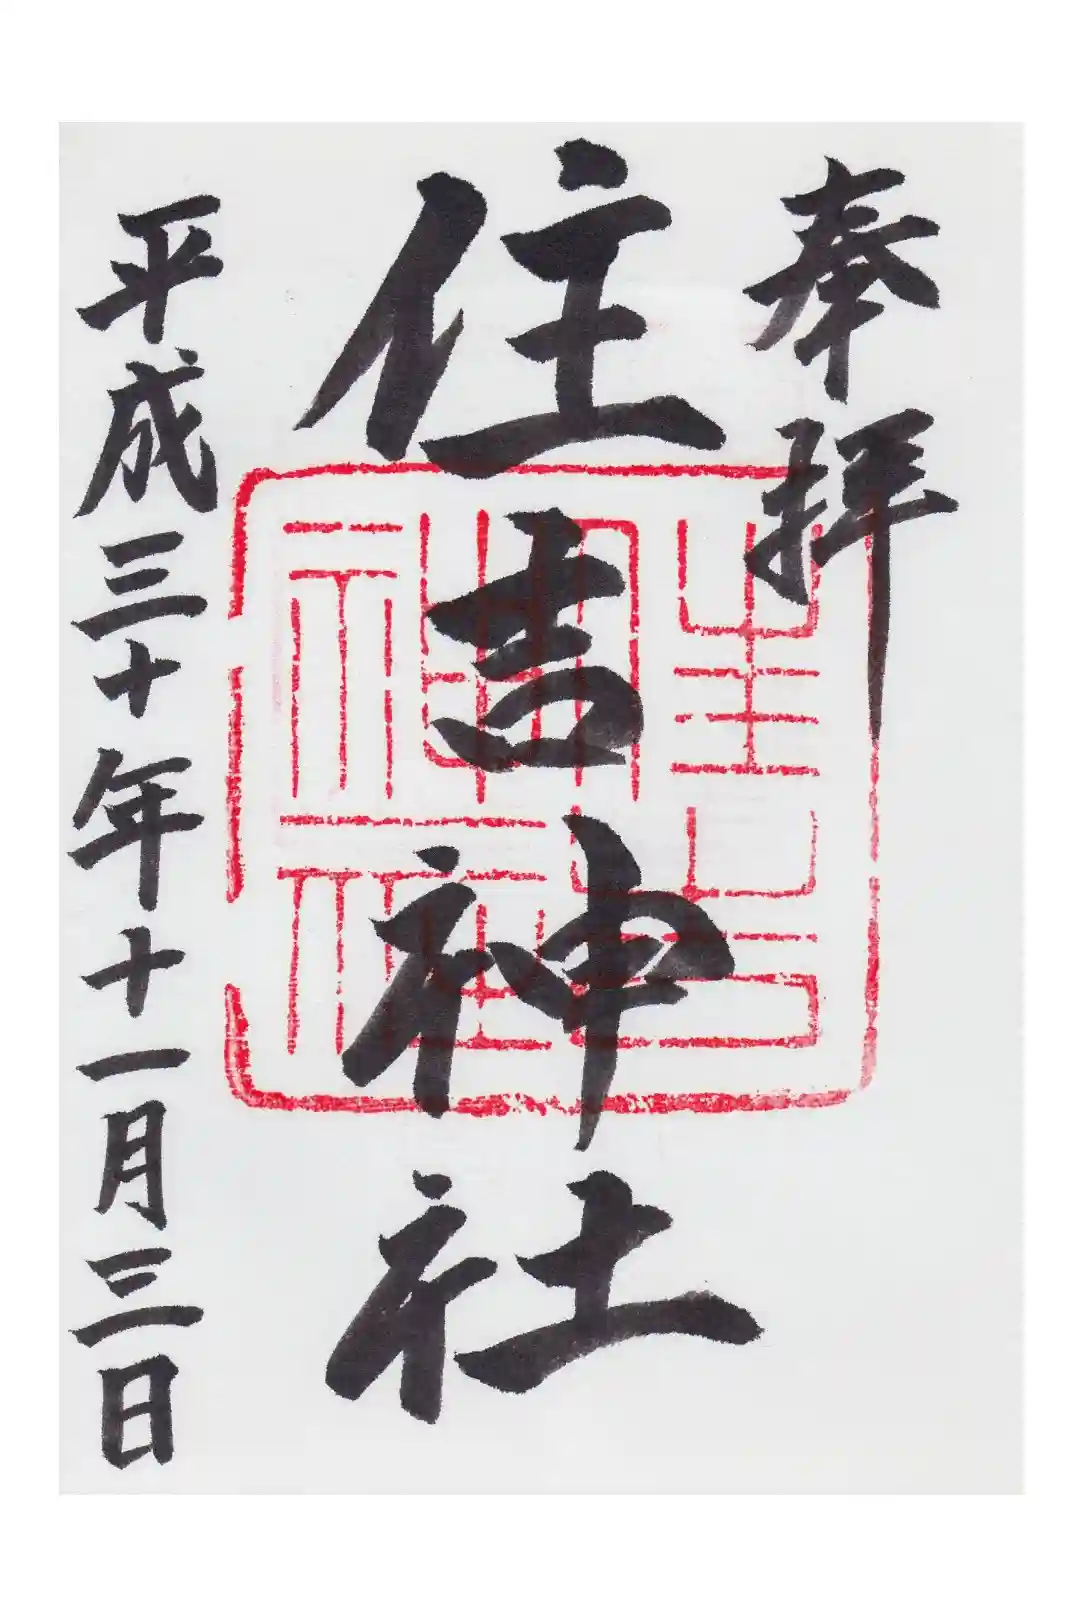 奉拝
住吉神社
住吉神社
平成三十年十一月三日